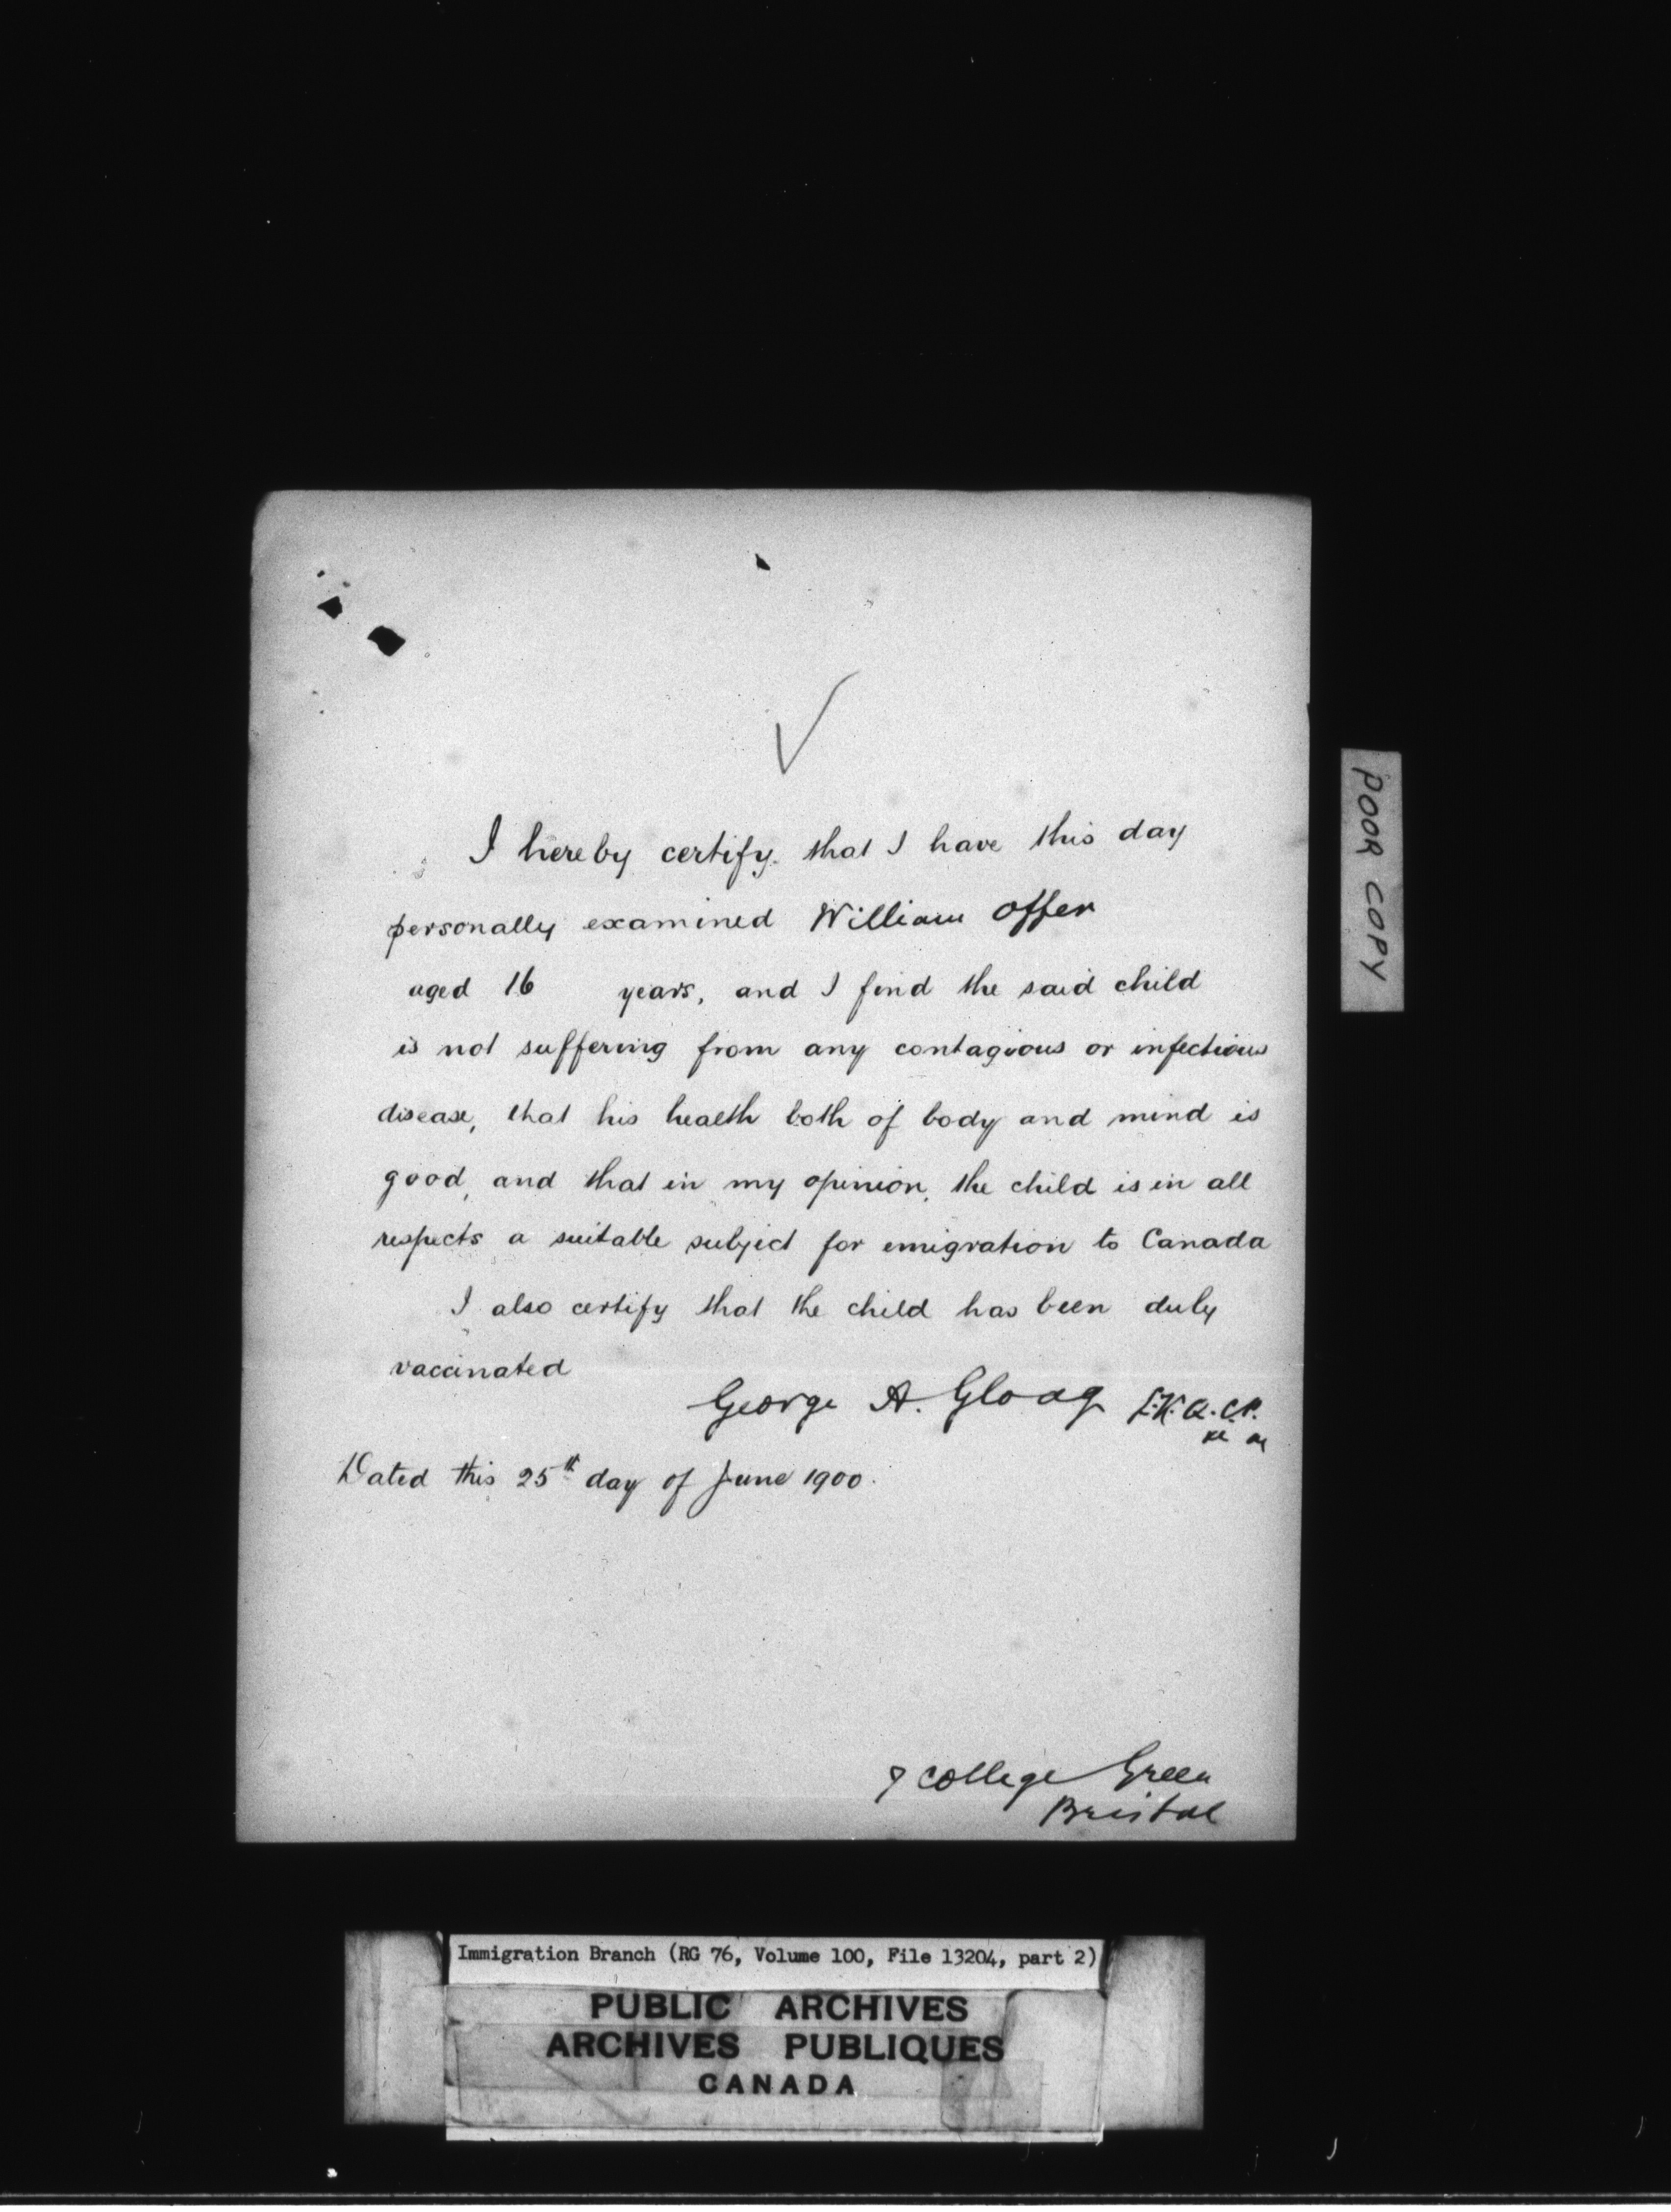 I hereby certify that I have this day
personally examined William Offer
aged 16 years, and I find the said child
is not suffering from any contagious or infectious
disease, that his health both of body and mind is
good, and that in my opinion, the child is in all
respects a suitable subject for emigration to Canada
I also certify that the child has been duly
vaccinated
George A. Gloag L.K.Q.C.P.
Dated this 25th day of June 1900.
7 College Green
Bristol
POOR COPY
Immigration Branch (RG 76, Volume 100, File 13204, part 2)
PUBLIC ARCHIVES
ARCHIVES PUBLIQUES
CANADA